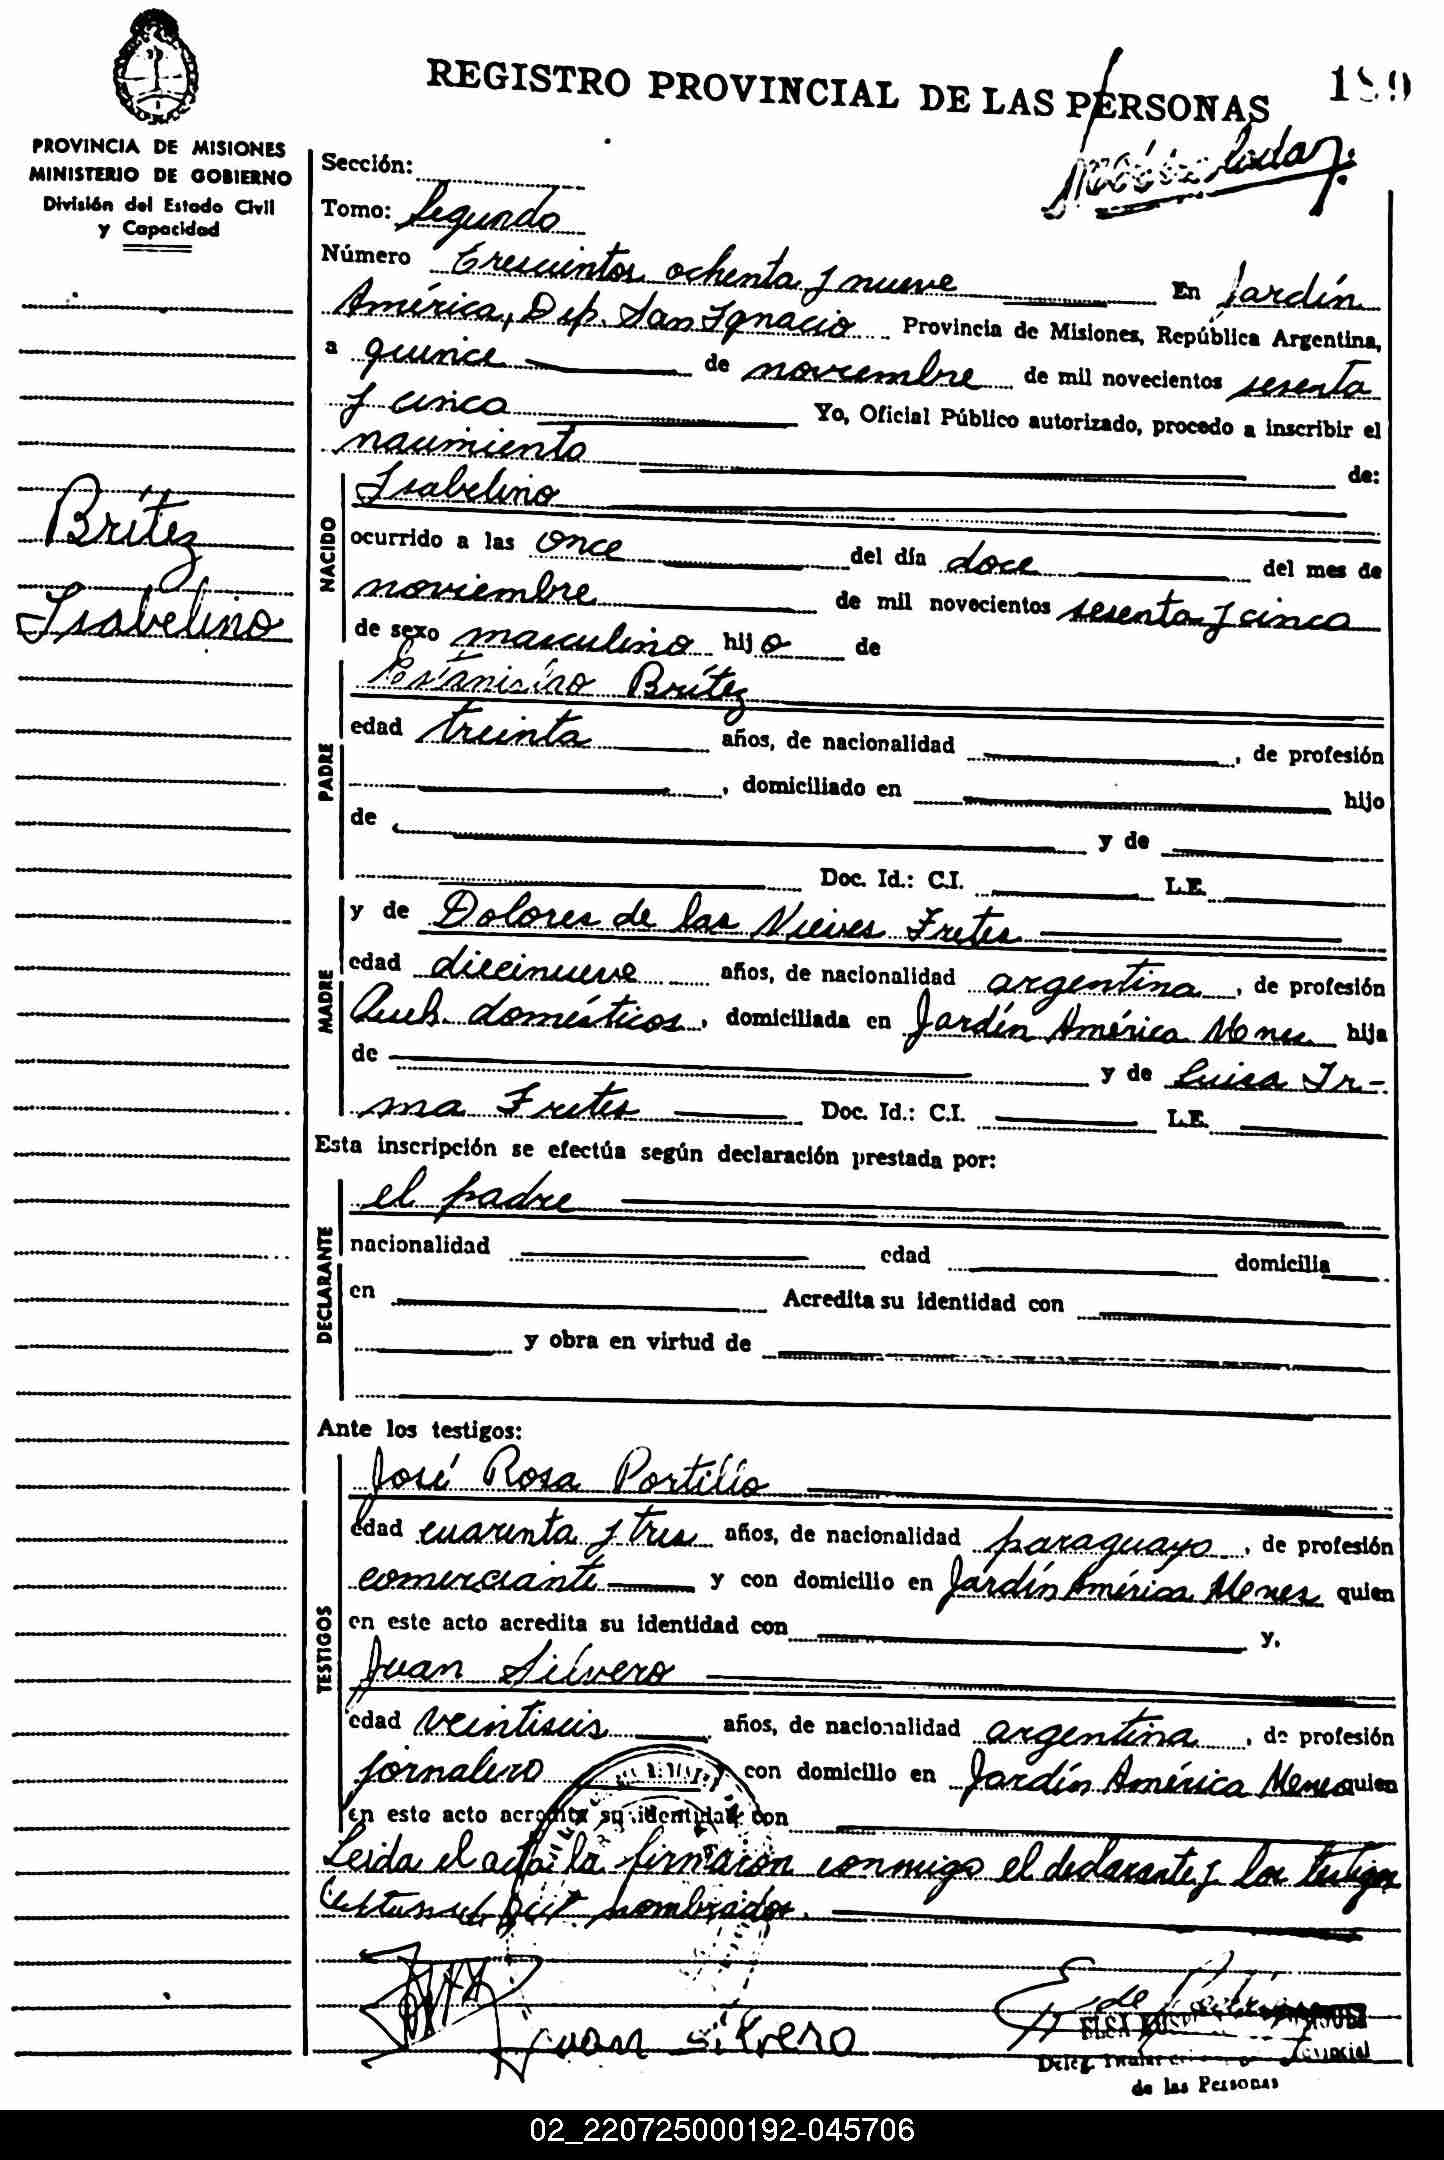 REGISTRO PROVINCIAL DE LAS PERSONAS
PROVINCIA DE MISIONES
MINISTERIO DE GOBIERNO
División del Estado Civil
y Capacidad
Sección:
Tomo: Segundo
Número Trescientos ochenta y nueve En Jardín
América, Dep. San Ignacio Provincia de Misiones, República Argentina,
a quince de noviembre de mil novecientos sesenta
y cinco Yo, Oficial Público autorizado, procedo a inscribir el
nacimiento de:
Brítez
Isabelino
NACIDO
Isabelino
ocurrido a las once del día doce del mes de
noviembre de mil novecientos sesenta y cinco
de sexo masculino hijo de
PADRE
Estanislao Brítez
edad treinta años, de nacionalidad , de profesión
, domiciliado en hijo
de y de
Doc. Id.: C.I. L.E.
MADRE
y de Dolores de las Nieves Fretes
edad diecinueve años, de nacionalidad argentina, de profesión
Queh. domésticos, domiciliada en Jardín América Mnes hija
de y de Luisa Ir-
ma Fretes Doc. Id.: C.I. L.E.
Esta inscripción se efectúa según declaración prestada por:
DECLARANTE
el padre
nacionalidad edad domicilia
en Acredita su identidad con
y obra en virtud de
Ante los testigos:
TESTIGOS
José Rosa Portillo
edad cuarenta y tres años, de nacionalidad paraguayo, de profesión
comerciante y con domicilio en Jardín América Mnes quien
en este acto acredita su identidad con y,
Juan Silvero
edad veintiseis años, de nacionalidad argentina, de profesión
jornalero con domicilio en Jardín América Mnes quien
en este acto acredita su identidad con
Leida el acta la firmaron conmigo el declarante y los testigos
nombrados.
Juan Silvero
de las Personas
02_220725000192-045706